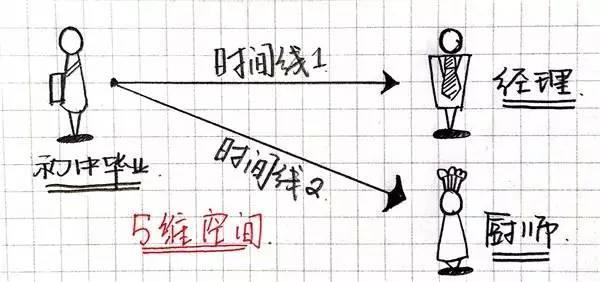 时间线1
经理.
初中毕业.
时间线2
5维空间.
厨师.